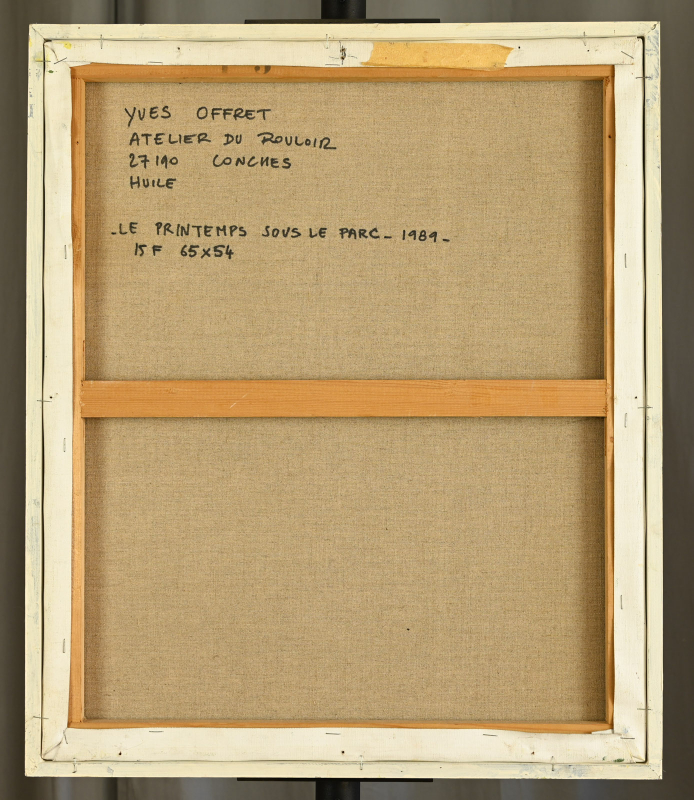 YVES OFFRET
ATELIER DU ROULOIR
27190 CONCHES
HUILE
-LE PRINTEMPS SOUS LE PARC- 1989-
15F 65x54